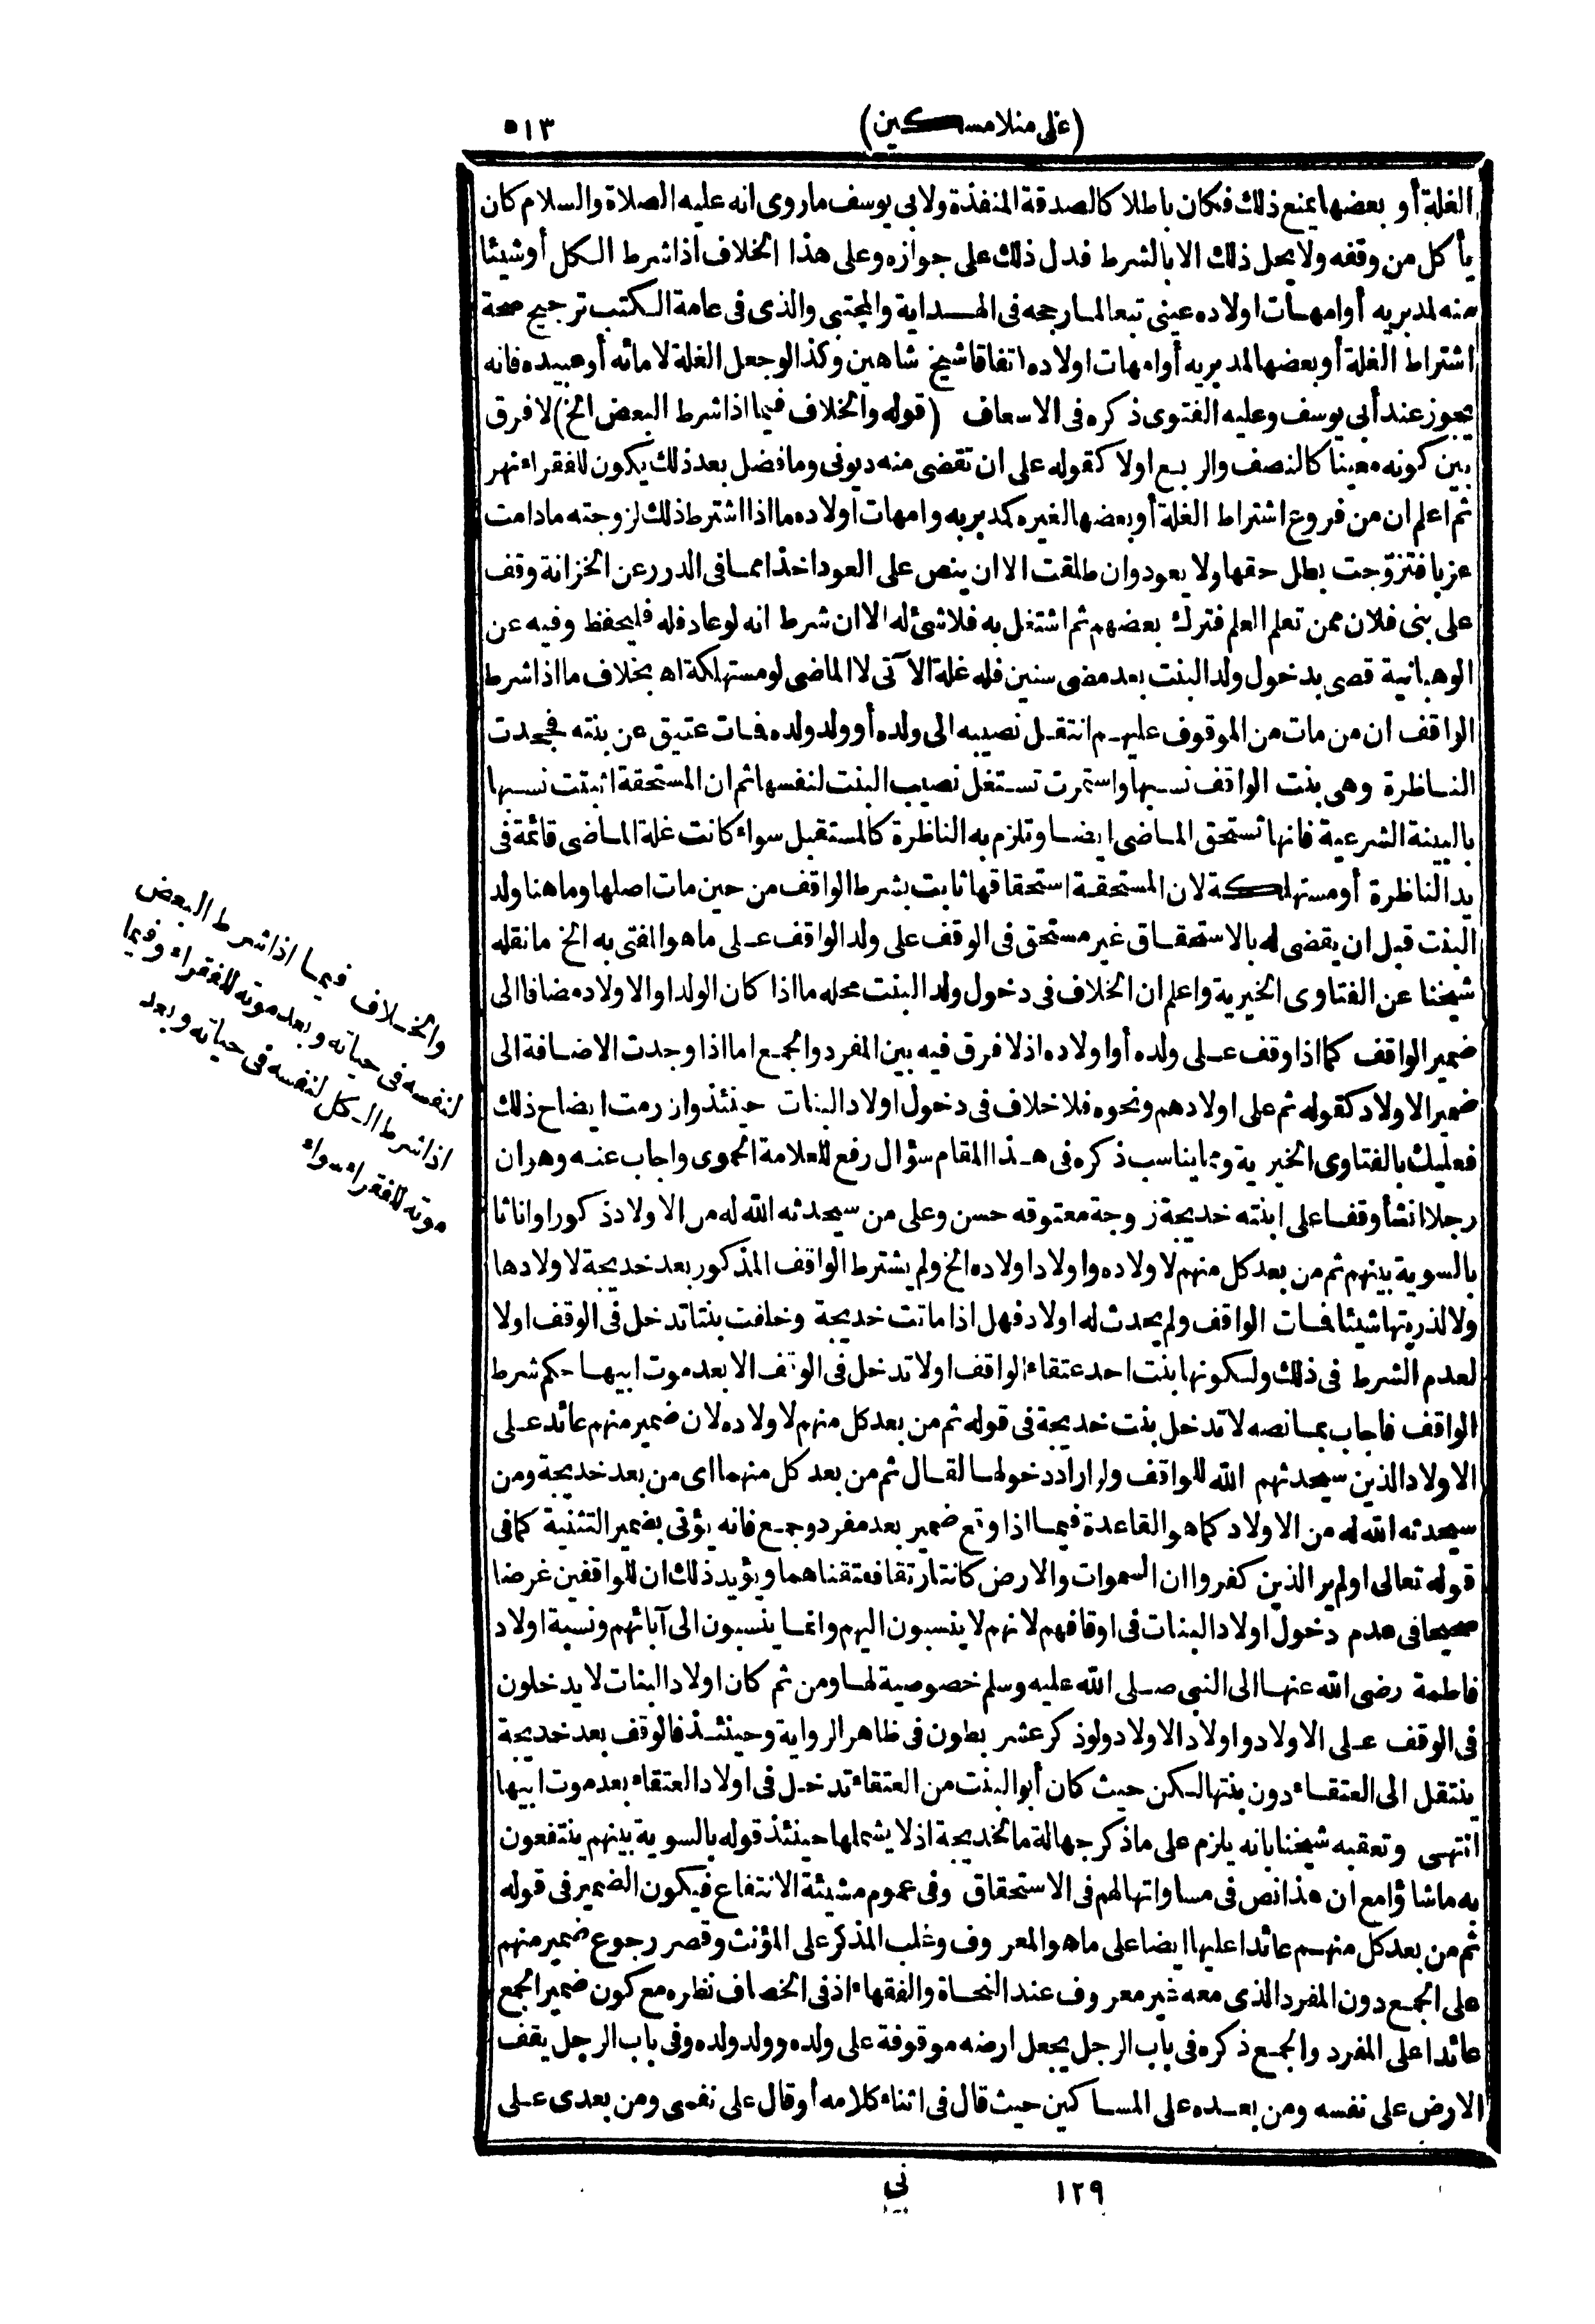 (على منلا مسكين)
٥١٣
الغلة أو بعضها يمنع ذلك فكان باطلا كالصدقة المنفذة ولابي يوسف ماروى انه عليه الصلاة والسلام كان
يأكل من وقفه ولا يحل ذلك الا بالشرط فدل ذلك على جوازه وعلى هذا الخلاف اذا شرط الكل أو شيئا
منه لمدبريه أو امهات اولاده عيني تبعا لما رجحه فى الهداية والمجتبى والذى فى عامة الكتب ترجيح صحة
اشتراط الغلة أو بعضها لمدبريه أو امهات اولاده اتفاقا شيخ شاهين وكذا لو جعل الغلة لامائه أو عبيده فانه
يجوز عند أبي يوسف وعليه الفتوى ذكره فى الاسعاف (قوله والخلاف فيما اذا شرط البعض الخ) لا فرق
بين كونه معينا كالنصف والربع اولا كقوله على ان تقضى منه ديونى وما فضل بعد ذلك يكون للفقراء نهر
ثم اعلم ان من فروع اشتراط الغلة أو بعضها لغيره كمدبريه وامهات اولاده ما اذا اشترط ذلك لزوجته مادامت
عزبا فتزوّجت بطل حقها ولا يعود وان طلقت الا ان ينص على العود اخذا مما فى الدرر عن الخزانة وقف
على بنى فلان ممن تعلم العلم فترك بعضهم ثم اشتغل به فلا شئ له الا ان شرط انه لو عاد فله فليحفظ وفيه عن
الوهبانية قضى بدخول ولد البنت بعد مضى سنين فله غلة الآتى لا الماضى لو مستهلكة اه بخلاف ما اذا شرط
الواقف ان من مات من الموقوف عليهم انتقل نصيبه الى ولده أو ولد ولده فمات عتيق عن بنته فجحدت
الناظرة وهى بنت الواقف نسبها واستمرت تستغل نصيب البنت لنفسها ثم ان المستحقة اثبتت نسبها
بالبينة الشرعية فانها تستحق الماضى ايضا وتلزم به الناظرة كالمستقبل سواء كانت غلة الماضى قائمة فى
يد الناظرة أو مستهلكة لان المستحقة استحقاقها ثابت بشرط الواقف من حين مات اصلها وما هنا ولد
البنت قبل ان يقضى له بالاستحقاق غير مستحق فى الوقف على ولد الواقف على ما هو المفتى به الخ ما نقله
شيخنا عن الفتاوى الخيرية واعلم ان الخلاف فى دخول ولد البنت محله ما اذا كان الولد او الاولاد مضافا الى
ضمير الواقف كما اذا وقف على ولده أو اولاده اذ لا فرق فيه بين المفرد والجمع اما اذا وجدت الاضافة الى
ضمير الاولاد كقوله ثم على اولادهم ونحوه فلا خلاف فى دخول اولاد البنات حينئذ وان رمت ايضاح ذلك
فعليك بالفتاوى الخيرية ومما يناسب ذكره فى هذا المقام سؤال رفع للعلامة الحموى واجاب عنه وهو ان
رجلا انشأ وقفا على ابنته خديجة زوجة معتوقه حسن وعلى من سيحدثه الله له من الاولاد ذكورا واناثا
بالسوية بينهم ثم من بعد كل منهم لاولاده واولاد اولاده الخ ولم يشترط الواقف المذكور بعد خديجة لاولادها
ولا لذريتها شيئا فمات الواقف ولم يحدث له اولاد فهل اذا ماتت خديجة وخلفت بنتا تدخل فى الوقف اولا
لعدم الشرط فى ذلك ولكونها بنت احد عتقاء الواقف او لا تدخل فى الوقف الا بعد موت ابيها حكم شرط
الواقف فاجاب بما نصه لا تدخل بنت خديجة فى قوله ثم من بعد كل منهم لاولاده لان ضمير منهم عائد على
الاولاد الذين سيحدثهم الله للواقف ولو اراد دخولها لقال ثم من بعد كل منهما اى من بعد خديجة ومن
سيحدثه الله له من الاولاد كما هو القاعدة فيما اذا وقع ضمير بعد مفرد وجمع فانه يؤتى بضمير التثنية كما فى
قوله تعالى اولم ير الذين كفروا ان السموات والارض كانتا رتقا ففتقناهما ويؤيد ذلك ان للواقفين غرضا
صحيحا فى عدم دخول اولاد البنات فى اوقافهم لانهم لا ينسبون اليهم وانما ينسبون الى آبائهم ونسبة اولاد
فاطمة رضى الله عنها الى النبى صلى الله عليه وسلم خصوصية لها ومن ثم كان اولاد البنات لا يدخلون
فى الوقف على الاولاد واولاد الاولاد ولو ذكر عشر بطون فى ظاهر الرواية وحينئذ فالوقف بعد خديجة
ينتقل الى العتقاء دون بنتها لكن حيث كان أبو البنت من العتقاء تدخل فى اولاد العتقاء بعد موت ابيها
انتهى وتعقبه شيخنا بانه يلزم على ما ذكر جهالة ما لخديجة اذ لا يشملها حينئذ قوله بالسوية بينهم ينتفعون
به ما شاؤا مع ان هذا نص فى مساواتها لهم فى الاستحقاق وفى عموم مشيئة الانتفاع فيكون الضمير فى قوله
ثم من بعد كل منهم عائدا عليها ايضا على ما هو المعروف وغلب المذكر على المؤنث وقصر رجوع ضمير منهم
على الجمع دون المفرد الذى معه غير معروف عند النحاة والفقهاء اذ فى الخصاف نظره مع كون ضمير الجمع
عائدا على المفرد والجمع ذكره فى باب الرجل يجعل ارضه موقوفة على ولده وولد ولده وفى باب الرجل يقف
الارض على نفسه ومن بعده على المساكين حيث قال فى اثناء كلامه أو قال على نفسى ومن بعدى على
والخلاف فيما اذا شرط البعض
لنفسه فى حياته وبعد موته للفقراء وفيما
اذا شرط الكل لنفسه فى حياته وبعد
موته للفقراء سواء
١٢٩
ني